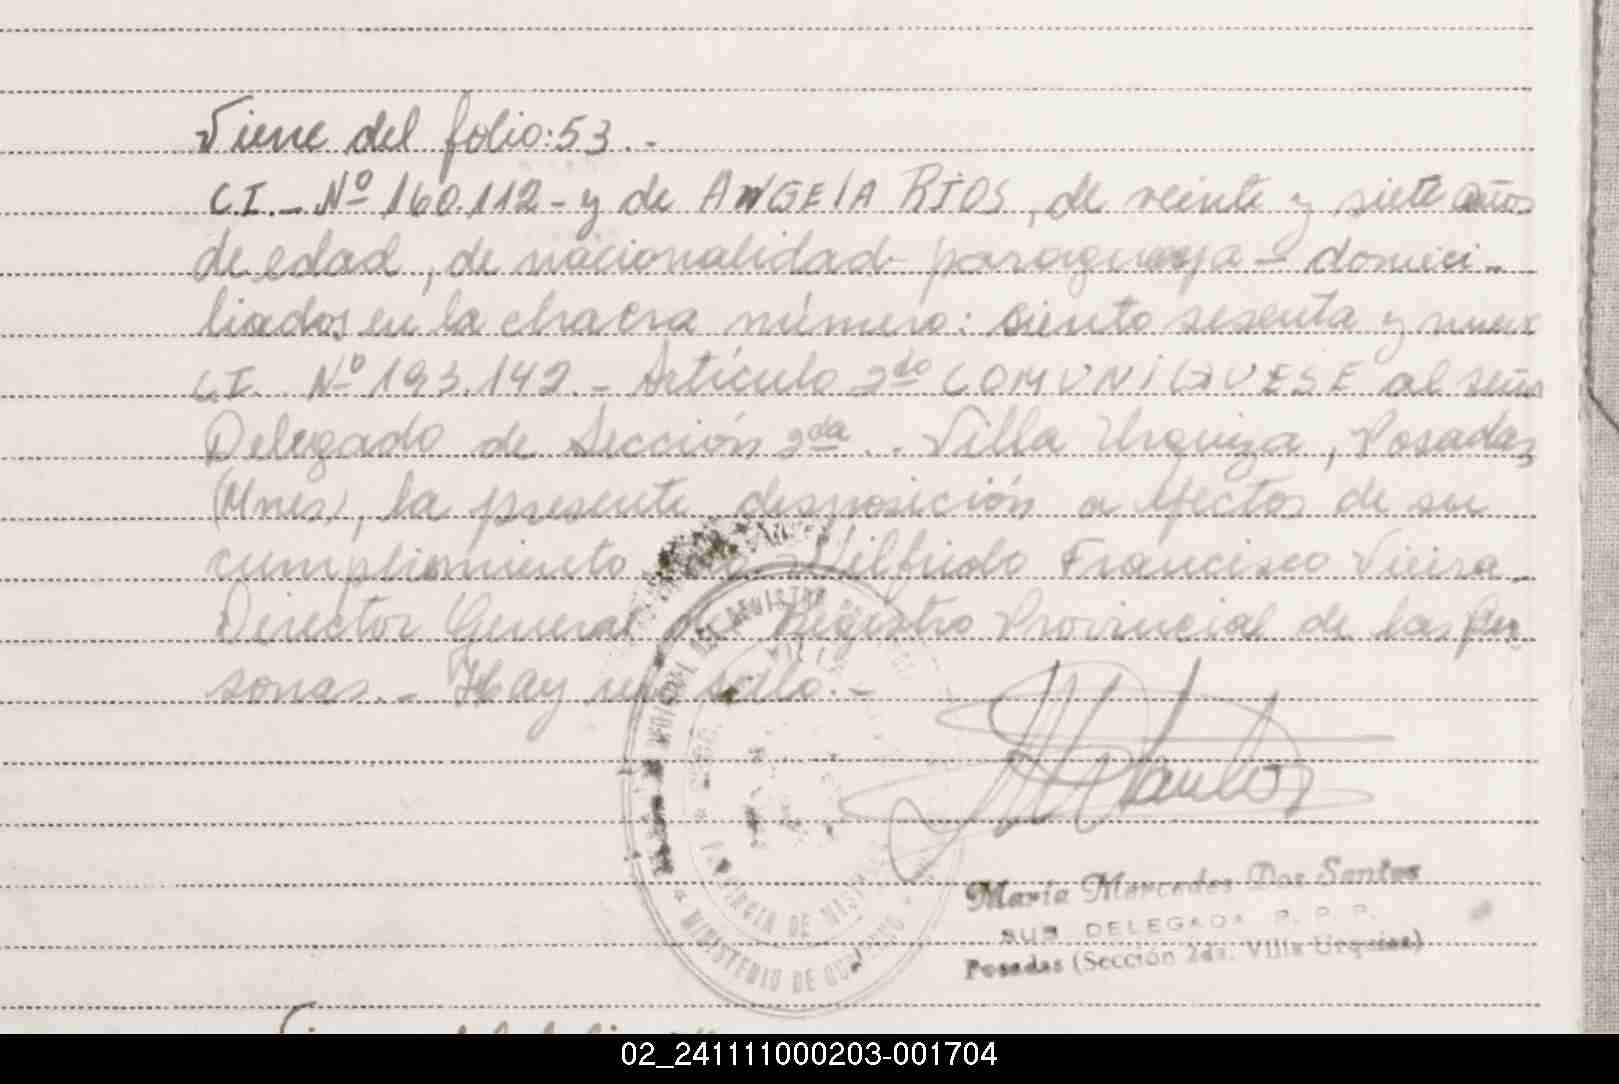 Viene del folio: 53.-
C.I.- Nº 160.112- y de ANGELA RIOS, de veinte y siete años
de edad, de nacionalidad paraguaya - domici-
liados en la chacra número: siento sesenta y nueve
C.I. Nº 193.142.- Artículo 2do COMUNIQUESE al señor
Delegado de Sección 2da.. Villa Urquiza, Posadas
(Mnes), la presente disposición a efectos de su
cumplimiento Wilfrido Francisco Vieira
Director General de Registro Provincial de las Per
sonas.- Hay un sello.-
DEL REGISTRO
PROVINCIA DE MISIONES
MINISTERIO DE GOBIERNO
María Mercedes Dos Santos
SUB DELEGADA R. P. P.
Posadas (Sección 2da. Villa Urquiza)
02_241111000203-001704